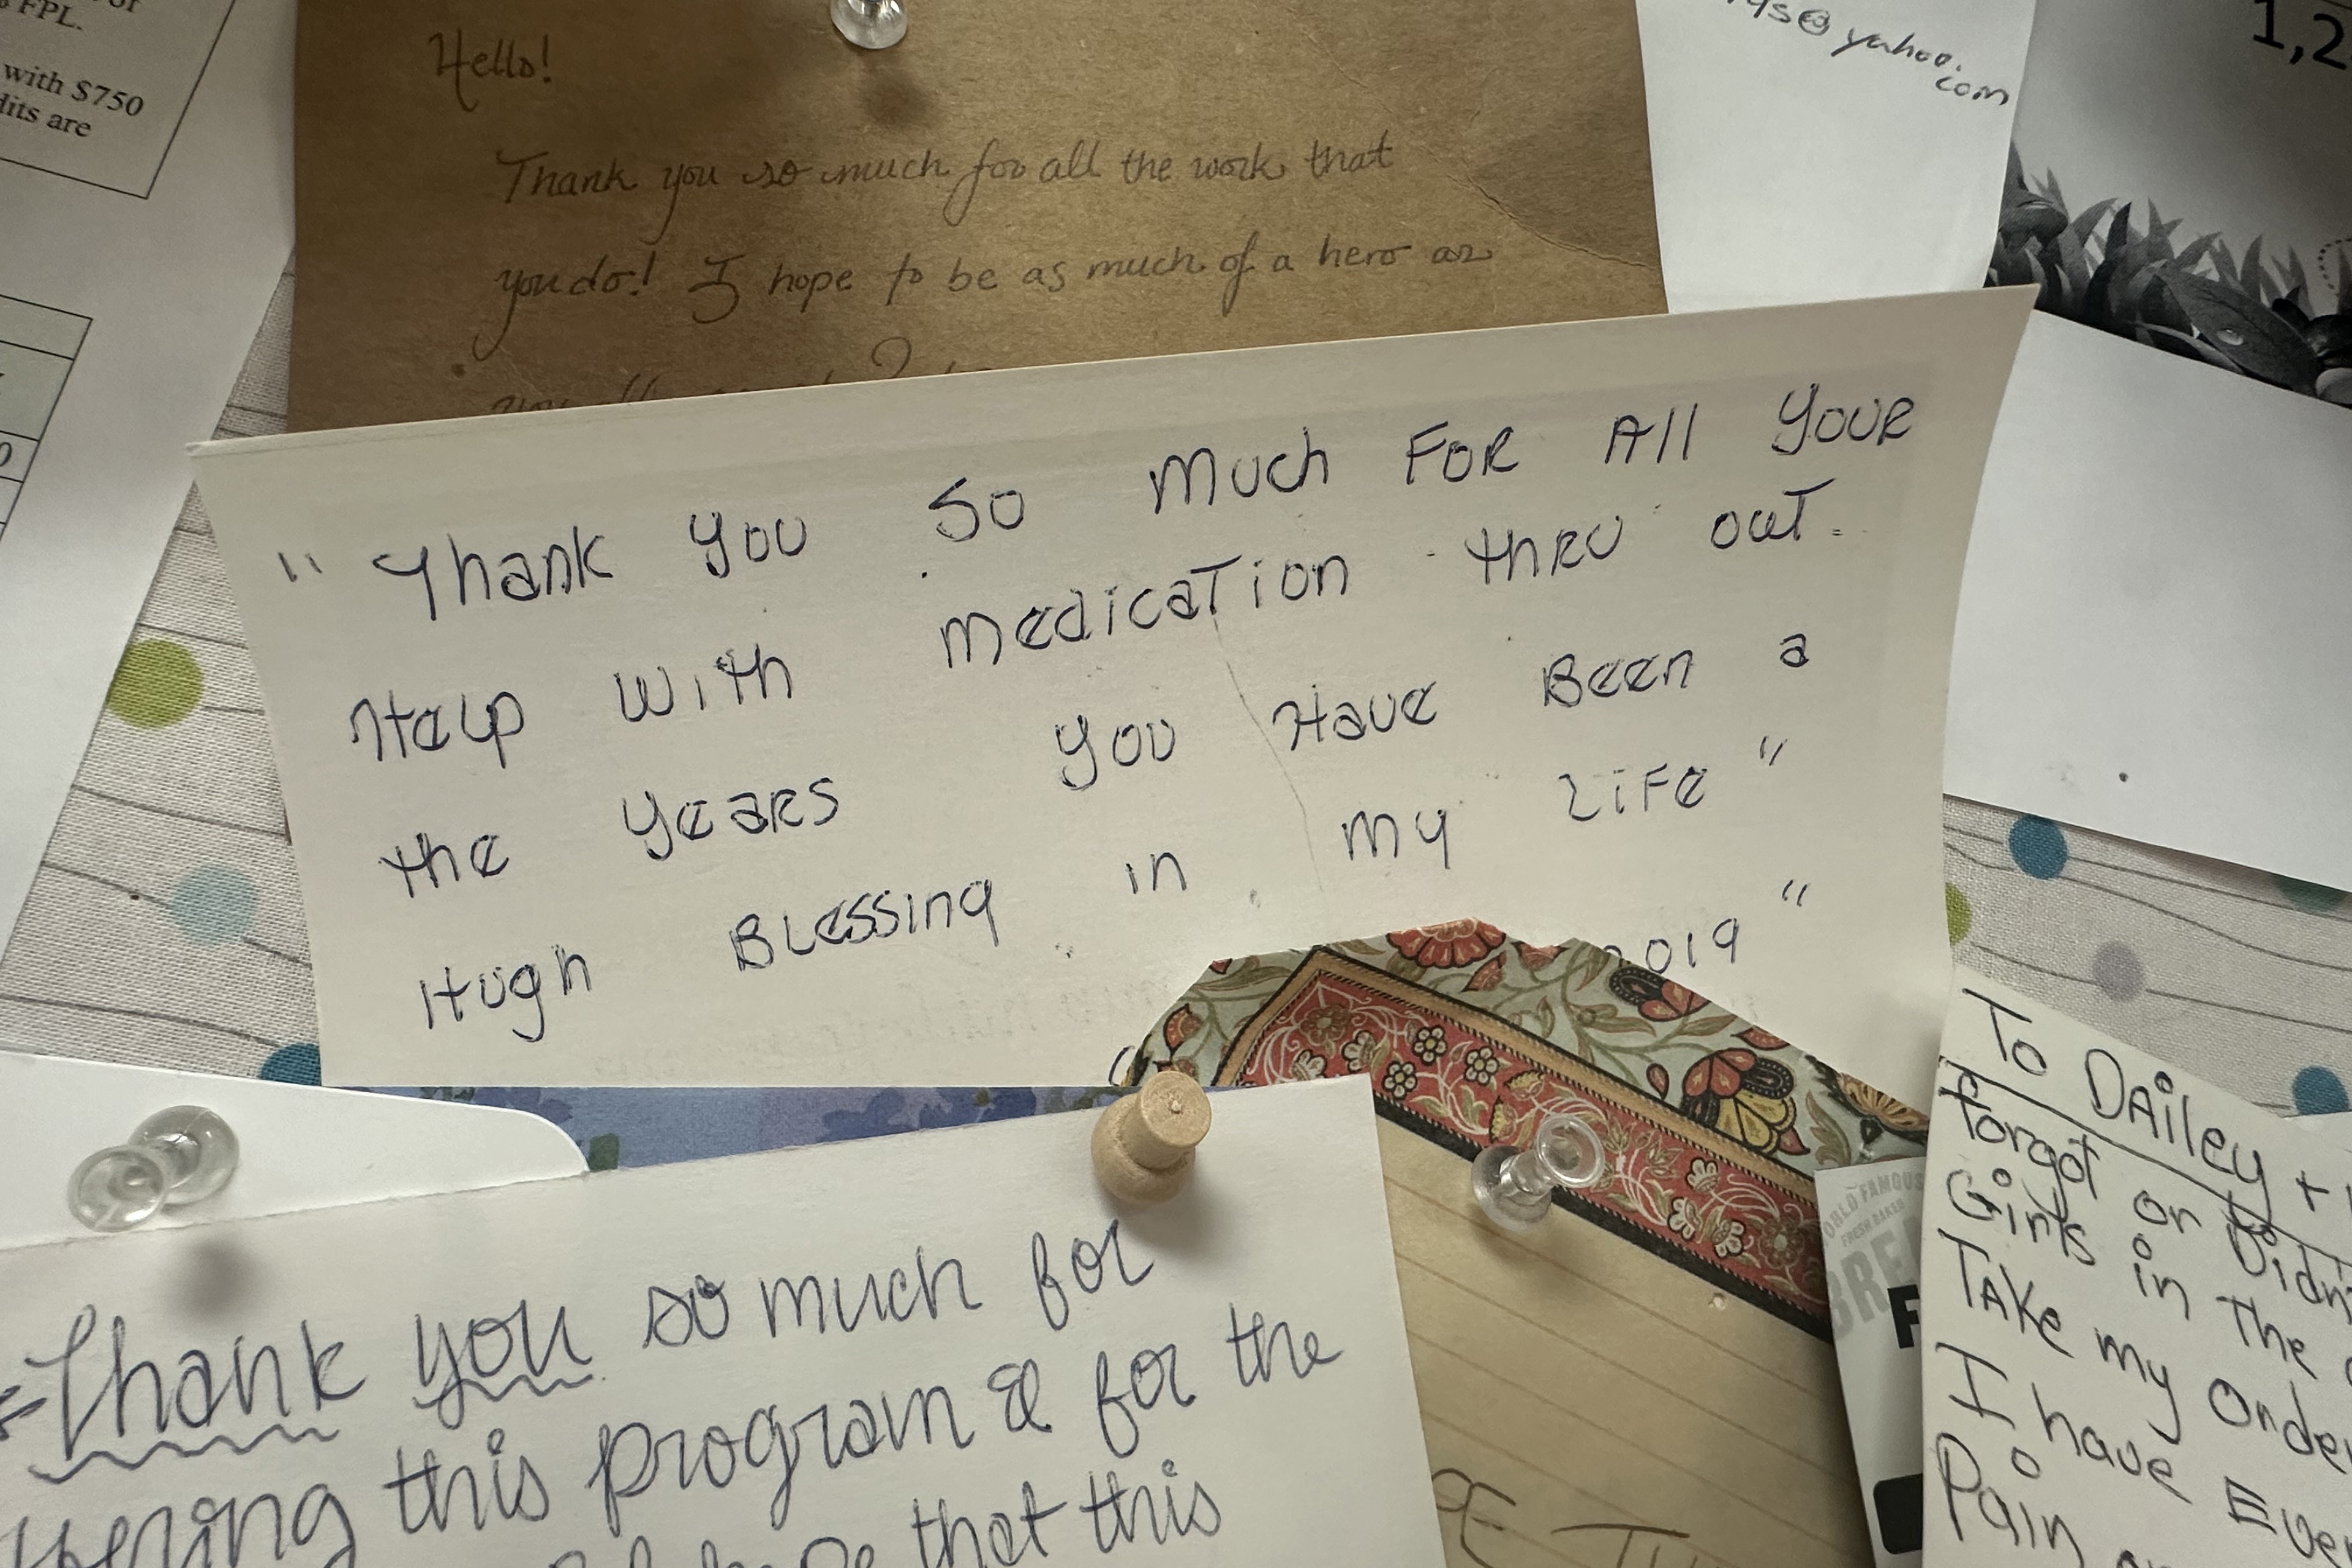 FPL.
with $750
are
Hello!
Thank you so much for all the work that
you do! I hope to be as much of a hero as
@yahoo.
com
1,2
" Thank you so much FOR All youR
Help with medication thru out.
the years you Have Been a
Hugh Blessing in my Life "
2019 "
Thank you so much for
this program & for the
that this
To DAiley +
Forgot or Didn't
Girls in the
TAKe my Order
I have Ever
Pain
WORLD FAMOUS
FRESH BAKED